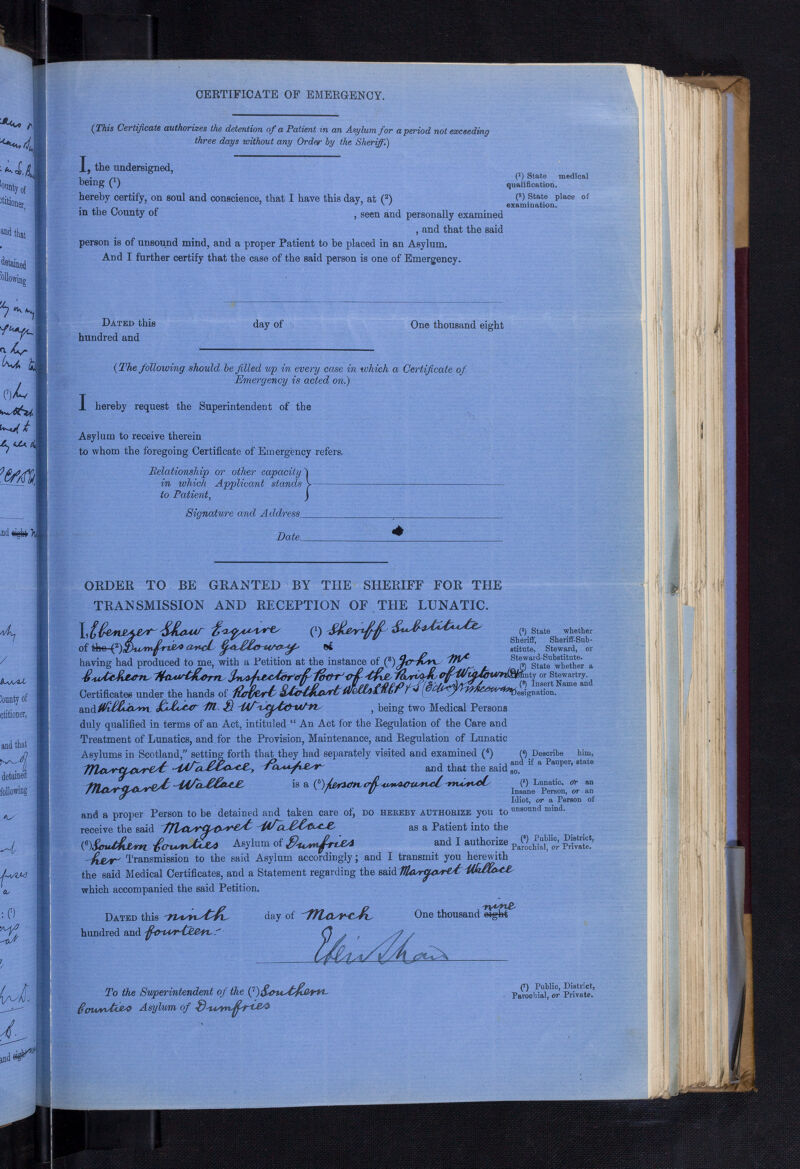 CERTIFICATE OF EMERGENCY.
(This Certificate authorizes the detention of a Patient in an Asylum for a period not exceeding
three days without any Order by the Sheriff.)
I, the undersigned,
being (¹)
hereby certify, on soul and conscience, that I have this day, at (²)
in the County of , seen and personally examined
, and that the said
person is of unsound mind, and a proper Patient to be placed in an Asylum.
And I further certify that the case of the said person is one of Emergency.
(¹) State medical
qualification.
(²) State place of
examination.
DATED this day of One thousand eight
hundred and
(The following should be filled up in every case in which a Certificate of
Emergency is acted on.)
I hereby request the Superintendent of the
Asylum to receive therein
to whom the foregoing Certificate of Emergency refers.
Relationship or other capacity
in which Applicant stands
to Patient,
Signature and Address
Date
ORDER TO BE GRANTED BY THE SHERIFF FOR THE
TRANSMISSION AND RECEPTION OF THE LUNATIC.
I, Ebenezer Shaw Esquire (¹) Sheriff Substitute
of the (²) Dumfries and Galloway
having had produced to me, with a Petition at the instance of (³) John Mc
Cutcheon Hawthorn Inspector of Poor of the Parish of Wigtown
Certificates under the hands of Robert Stothart Wells
and William Lilico M.D Wigtown , being two Medical Persons
duly qualified in terms of an Act, intituled "An Act for the Regulation of the Care and
Treatment of Lunatics, and for the Provision, Maintenance, and Regulation of Lunatic
Asylums in Scotland," setting forth that they had separately visited and examined (⁴)
Margaret Wallace, Pauper and that the said
Margaret Wallace is a (⁵) person of unsound mind
and a proper Person to be detained and taken care of, DO HEREBY AUTHORIZE you to
receive the said Margaret Wallace as a Patient into the
(⁶) Southern Counties Asylum of Dumfries and I authorize
her Transmission to the said Asylum accordingly; and I transmit you herewith
the said Medical Certificates, and a Statement regarding the said Margaret Wallace
which accompanied the said Petition.
(¹) State whether
Sheriff, Sheriff-Sub-
stitute, Steward, or
Steward-Substitute.
(²) State whether a
County or Stewartry.
(³) Insert Name and
Designation.
(⁴) Describe him,
and if a Pauper, state
so.
(⁵) Lunatic, or an
Insane Person, or an
Idiot, or a Person of
unsound mind.
(⁶) Public, District,
Parochial, or Private.
DATED this ninth day of March One thousand eight nine
hundred and fourteen.
Eben Shaw
To the Superintendent of the (⁷) Southern
Counties Asylum of Dumfries
(⁷) Public, District,
Parochial, or Private.